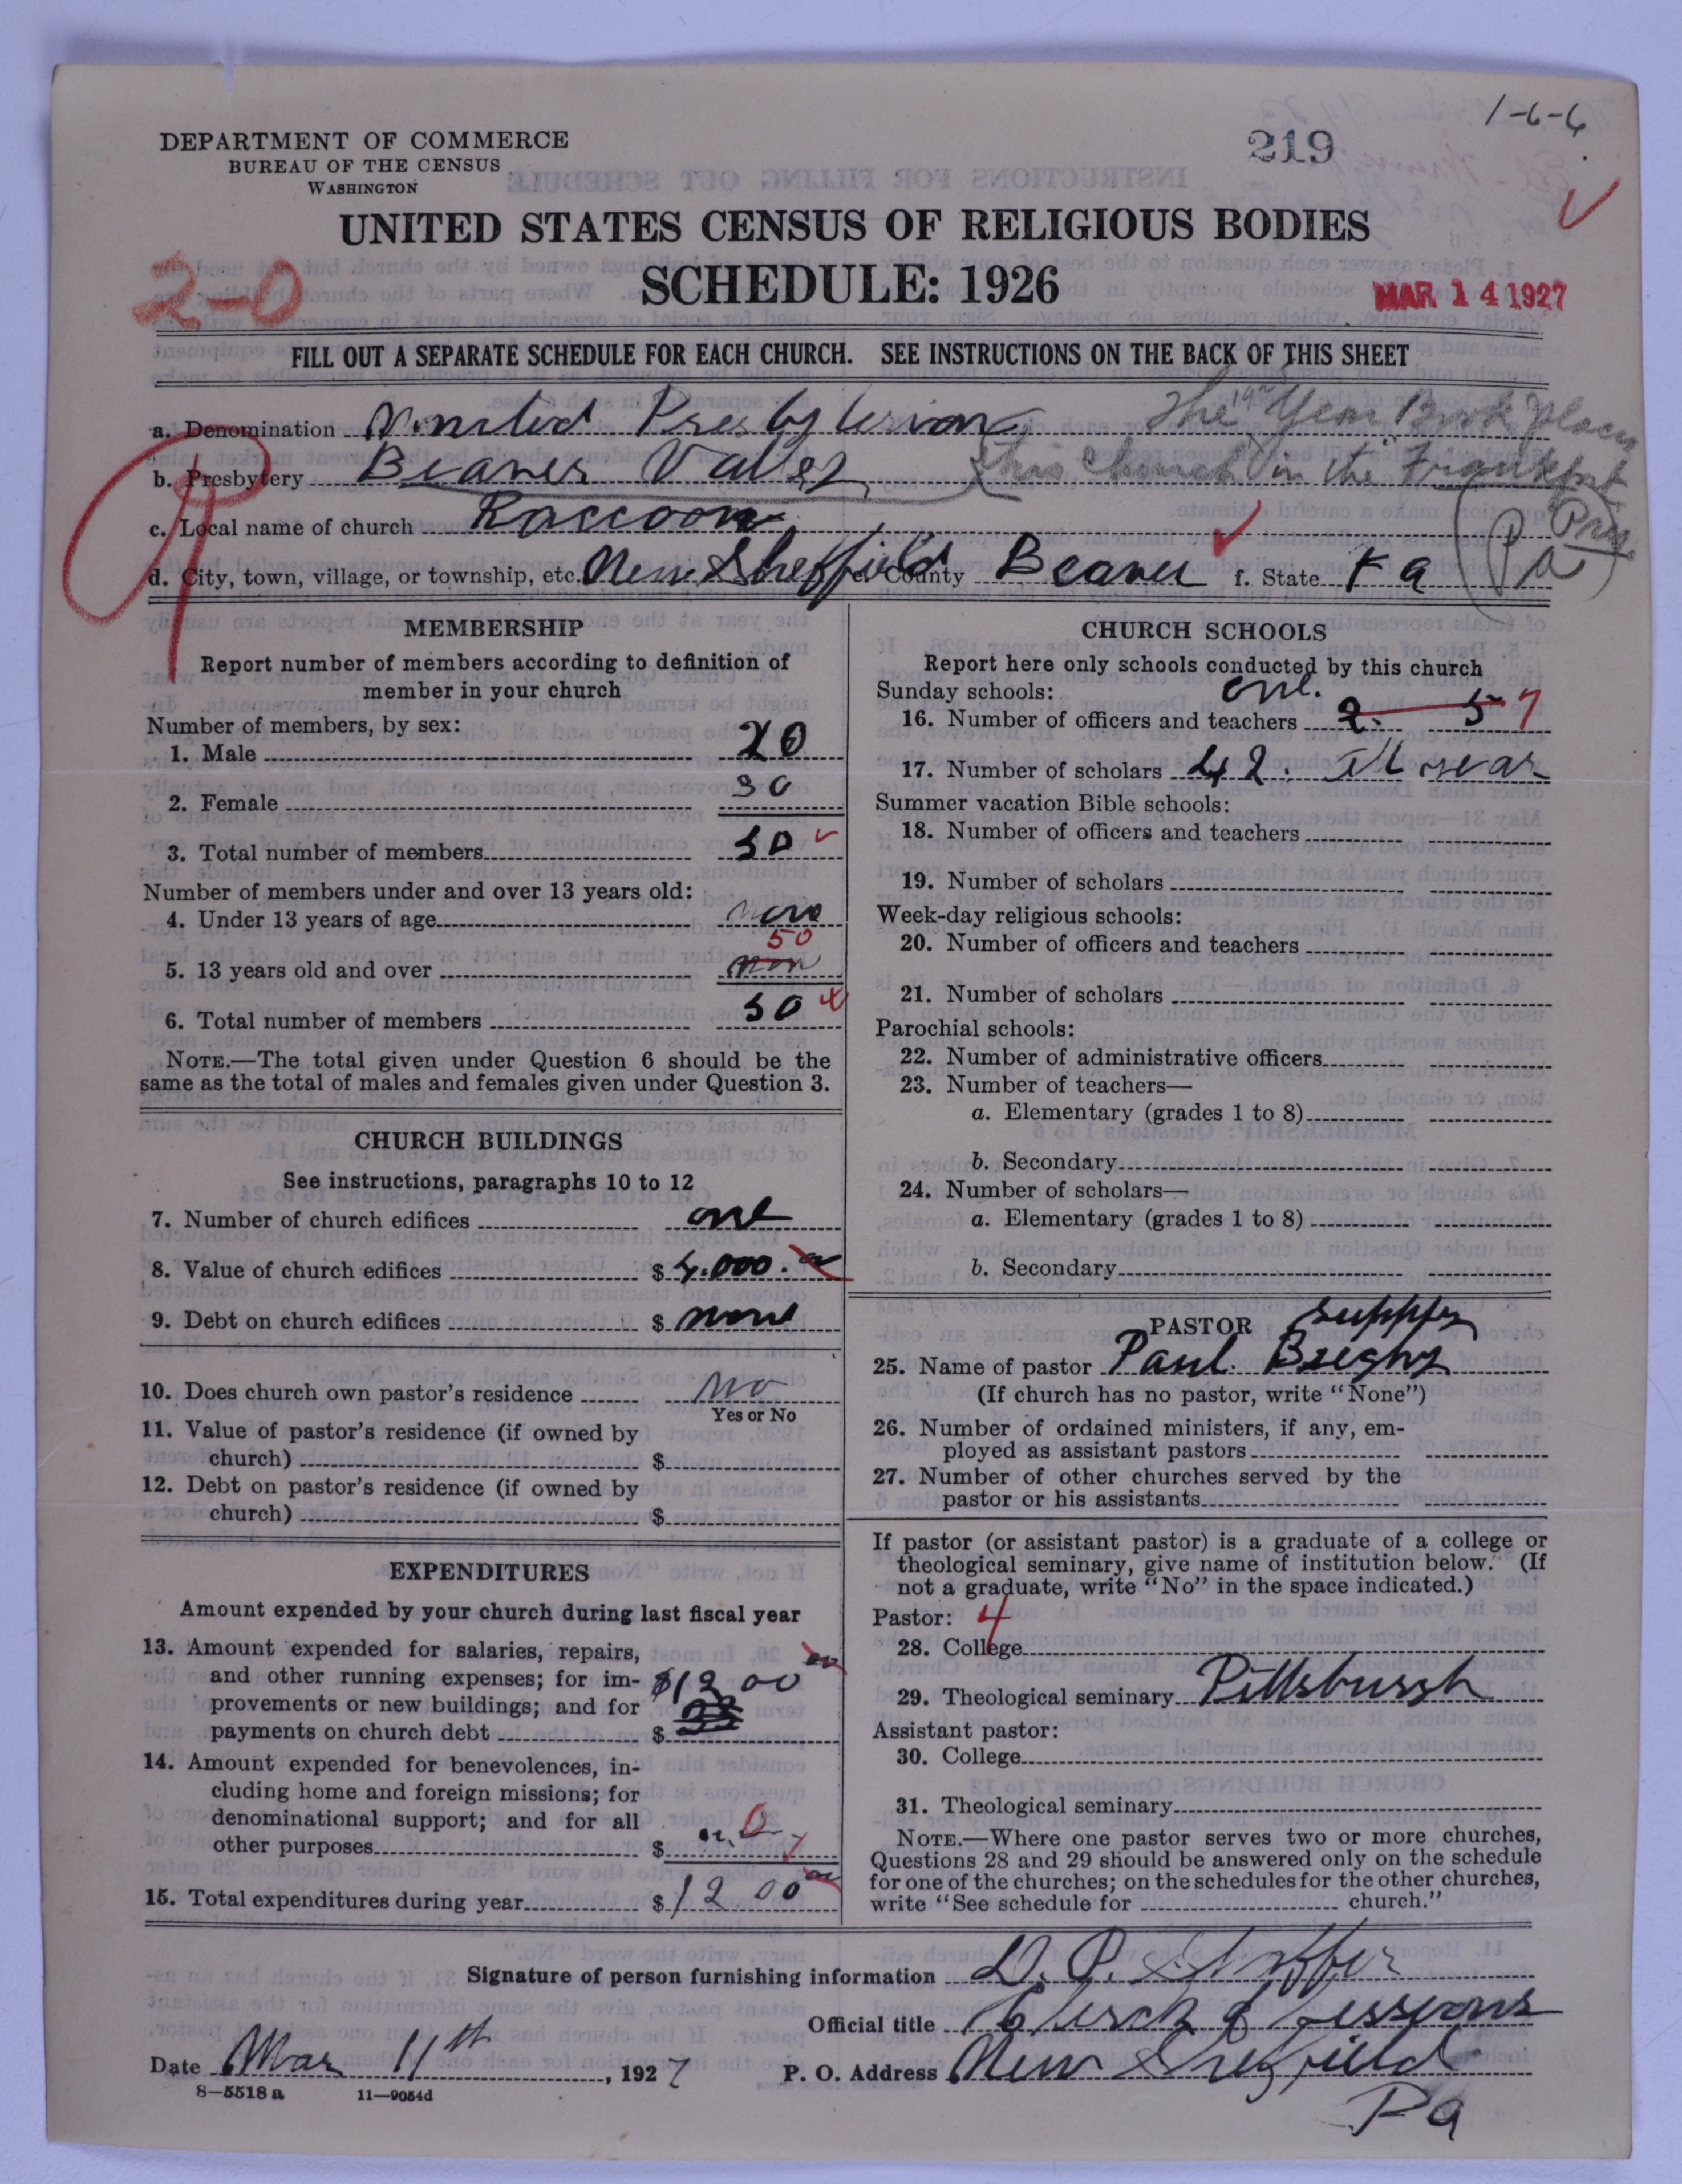 1-6-6
DEPARTMENT OF COMMERCE
BUREAU OF THE CENSUS
WASHINGTON
219
UNITED STATES CENSUS OF RELIGIOUS BODIES
SCHEDULE: 1926
2-0
MAR 14 1927
FILL OUT A SEPARATE SCHEDULE FOR EACH CHURCH. SEE INSTRUCTIONS ON THE BACK OF THIS SHEET
a. Denomination United Presbyterian The Year Book places
b. Presbytery Beaver Valley this church in the Frankfort Pres
c. Local name of church Raccoon
d. City, town, village, or township, etc. New Sheffield e. County Beaver f. State Pa (Pa)
MEMBERSHIP
Report number of members according to definition of
member in your church
Number of members, by sex:
1. Male 20
2. Female 30
3. Total number of members 50
Number of members under and over 13 years old:
4. Under 13 years of age none
50
5. 13 years old and over non
6. Total number of members 50
NOTE.—The total given under Question 6 should be the
same as the total of males and females given under Question 3.
CHURCH BUILDINGS
See instructions, paragraphs 10 to 12
7. Number of church edifices one
8. Value of church edifices $
9. Debt on church edifices $ none
10. Does church own pastor's residence no
Yes or No
11. Value of pastor's residence (if owned by
church) $
12. Debt on pastor's residence (if owned by
church) $
EXPENDITURES
Amount expended by your church during last fiscal year
13. Amount expended for salaries, repairs,
and other running expenses; for im- $1200
provements or new buildings; and for
payments on church debt $
14. Amount expended for benevolences, in-
cluding home and foreign missions; for
denominational support; and for all
other purposes $ 0
15. Total expenditures during year $ 1200
CHURCH SCHOOLS
Report here only schools conducted by this church
Sunday schools: one.
16. Number of officers and teachers 2. 5 7
17. Number of scholars 42.
Summer vacation Bible schools:
18. Number of officers and teachers
19. Number of scholars
Week-day religious schools:
20. Number of officers and teachers
21. Number of scholars
Parochial schools:
22. Number of administrative officers
23. Number of teachers—
a. Elementary (grades 1 to 8)
b. Secondary
24. Number of scholars—
a. Elementary (grades 1 to 8)
b. Secondary
PASTOR supply
25. Name of pastor Paul
(If church has no pastor, write "None")
26. Number of ordained ministers, if any, em-
ployed as assistant pastors
27. Number of other churches served by the
pastor or his assistants
If pastor (or assistant pastor) is a graduate of a college or
theological seminary, give name of institution below. (If
not a graduate, write "No" in the space indicated.)
Pastor: 4
28. College
29. Theological seminary Pittsburgh
Assistant pastor:
30. College
31. Theological seminary
NOTE.—Where one pastor serves two or more churches,
Questions 28 and 29 should be answered only on the schedule
for one of the churches; on the schedules for the other churches,
write "See schedule for church."
Signature of person furnishing information D. P.
Official title Clerk of Sessions
Date Mar 11th, 1927 P. O. Address New Sheffield
Pa
8-5518 a 11-9054d